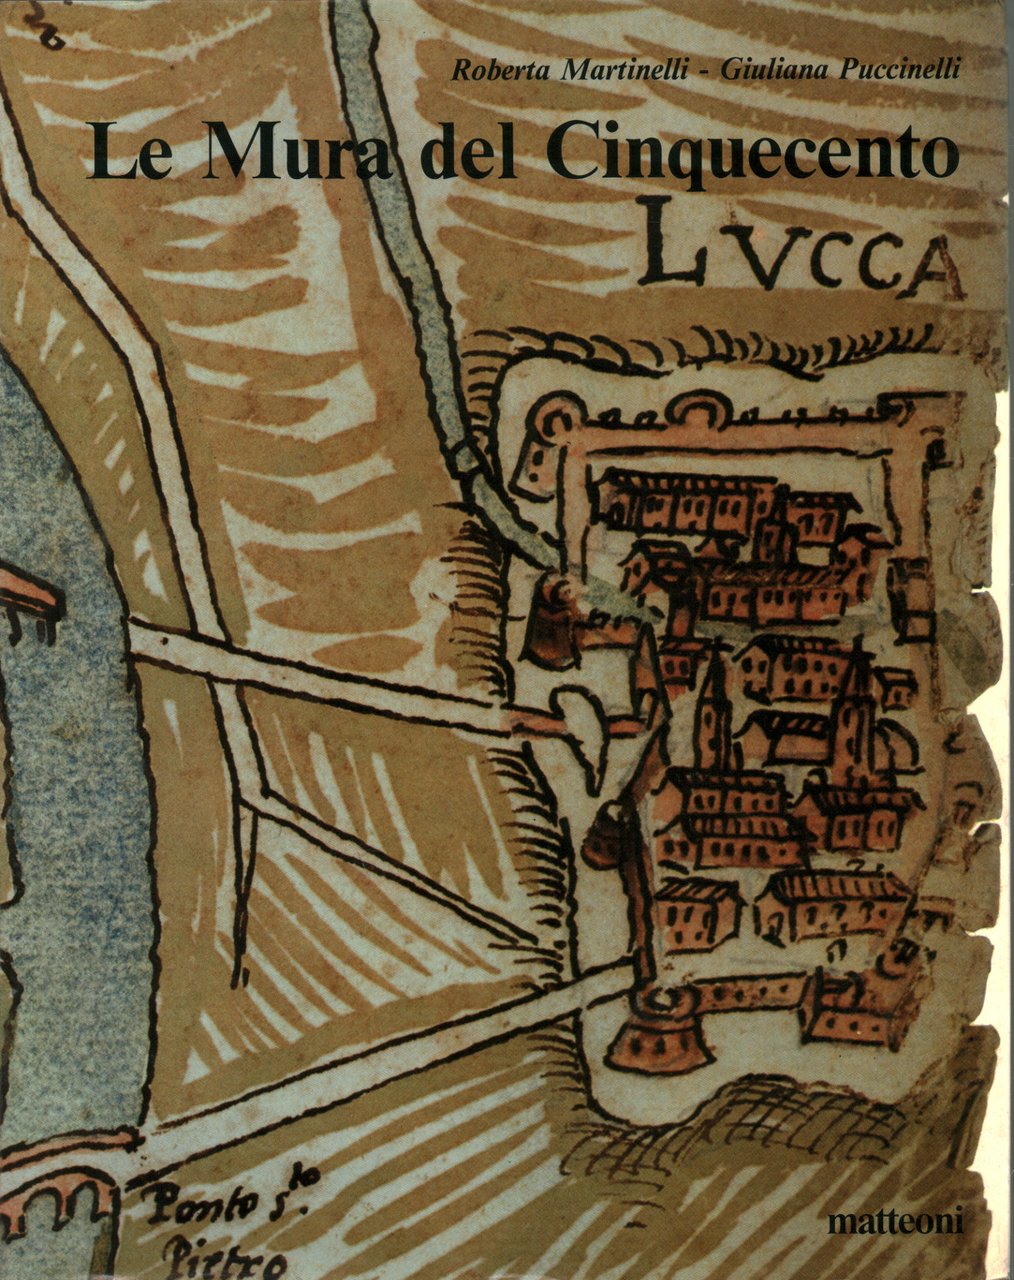 Roberta Martinelli - Giuliana Puccinelli
Le Mura del Cinquecento
LVCCA
Ponto s.to
Pietro
matteoni